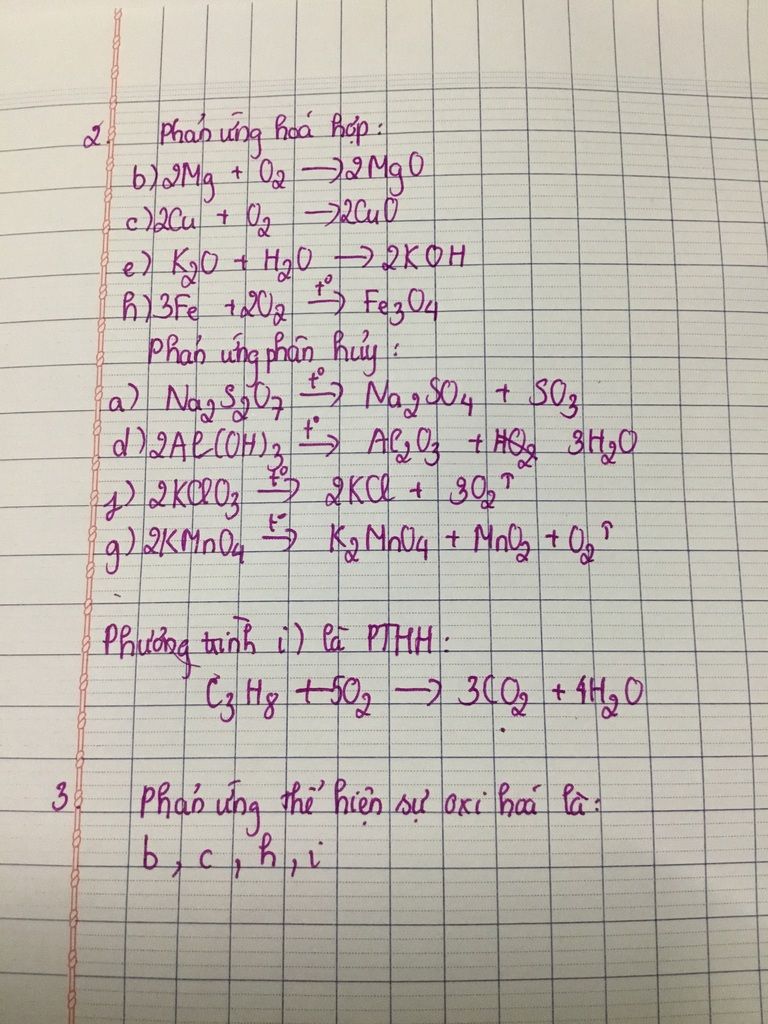 2. Phản ứng hoá hợp:
b) 2Mg + O₂ → 2MgO
c) 2Cu + O₂ → 2CuO
e) K₂O + H₂O → 2KOH
h) 3Fe + 2O₂ →t° Fe₃O₄
Phản ứng phân hủy:
a) Na₂S₂O₇ →t° Na₂SO₄ + SO₃
d) 2Al(OH)₃ →t° Al₂O₃ + 3H₂O
f) 2KClO₃ →t° 2KCl + 3O₂↑
g) 2KMnO₄ →t° K₂MnO₄ + MnO₂ + O₂↑
Phương trình i) là PTHH:
C₃H₈ + 5O₂ → 3CO₂ + 4H₂O
3. Phản ứng thể hiện sự oxi hoá là:
b, c, h, i